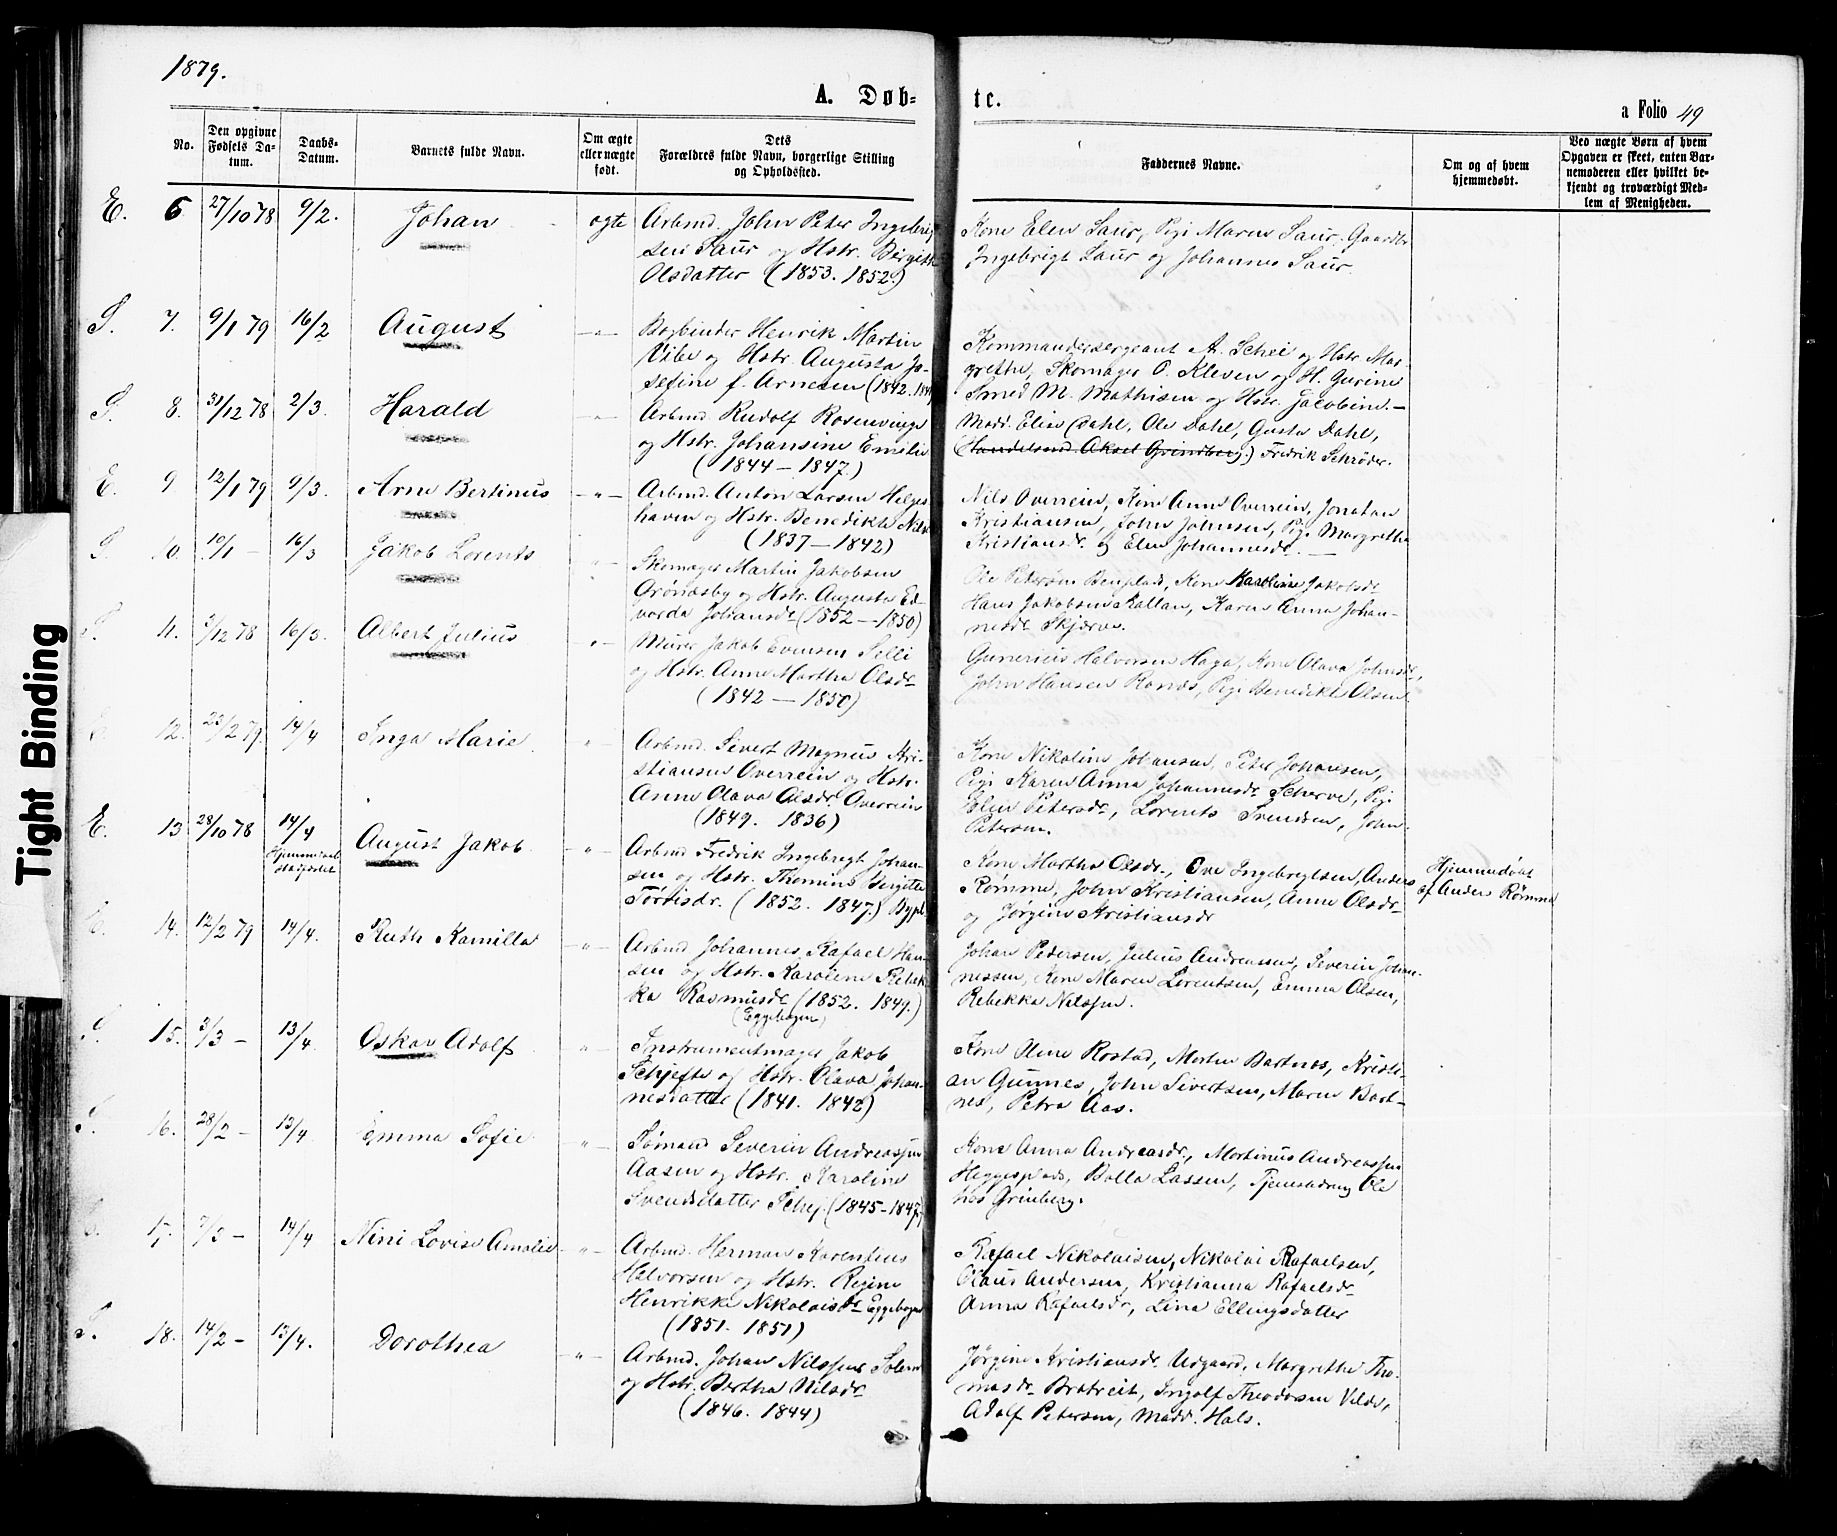 1879.
A. Døb-
te.
a Folio 49
No.
Den opgivne Fødsels Datum.
Daabs-Datum.
Barnets fulde Navn.
Om ægte eller uægte født.
Dets Forældres fulde Navn, borgerlige Stilling og Opholdssted.
Faddernes Navne.
Om og af hvem hjemmedøbt.
Ved uægte Børn af hvem Opgaven er skeet, enten Barnemoderen eller hvilket bekjendt og troværdigt Medlem af Menigheden.
E. 6 27/10 78 9/2. Johan ægte
Arbmd. John Peter Ingebrig
sen Saur og Hstr. Birgitte
Olsdatter (1853. 1852.)
Kone Elen Saur, Pigi Maren Saur. Gaardbr
Ingebrigt Saur og Johannes Saur.
S. 7. 9/1 79 16/2 August -"-
Bogbinder Henrik Martin
Vibe og Hstr. Augusta Jo-
sefine f. Arnesen (1842.
Kommandersergeant A. Schei og Hstr Mar-
grethe, Skomager O. Kleven og H. Gurine
S. 8. 31/12 78 2/3. Harald -"-
Arbmd. Rudolf Rosenvinge
og Hstr. Johansine Emilie
(1844 - 1847.)
Smed M. Mathisen og Hstr. Jacobine. -
Madd. Elise Dahl. Ole Dahl, Gusta Dahl,
(Handelsmd. Aksel Grindberg.) Fredrik Schrøder.
E. 9 12/1 79 9/3. Arne Bertinus -"-
Arbmd. Anton Larsen Helges
haven og Hstr. Benedikte Nilsd
(1837 - 1842)
Nils Overrein, Kone Anne Overrein, Jonatan
Kristiansen, John Johnsen, Pig. Margrethe
Kristiansdr. og Elen Johannesdr. -
S. 10. 10/1 - 16/3 Jakob Lorents -"-
Skomager Martin Jakobsen
Grønnesby og Hstr. Augusta Ed-
varda Johansdr (1852 - 1850)
Ole Petersen Benplads, Kone Karoline Jakobsdr
Hans Jakobsen Kallan, Karen Anna Johan-
nesdr Skjerve.
11. /12 78 16/3. Albert Julius -"-
Murer Jakob Evensen Selli
og Hstr. Anne Martha Olsdr
(1842 - 1850)
Gunerius Halvorsen Haga, Kone Olava Johnsdr,
John Hansen Ronæs, Pigi Benedikte Olsen
12. 23/2 79. 14/4 Inga Marie -"-
Arbmd. Sivert Magnus Kri-
stiansen Overrein og Hstr.
Anne Olava Olsdr. Overrein
(1849. 1836)
Kone Nikoline Johansen, Peter Johansen,
Pigi Karen Anna Johannesdr Scherve, Pigi
Elen Petersdr, Lorents Svendsen, John
Petersen.
E. 13 28/10 78 14/4 August Jakob -"-
Hjemmedaab
stadfæstet
Arbmd Fredrik Ingebregt Johan-
sen og Hstr. Thomine Bergitte
Tørrisdr. (1852. 1847.) Bypl.
Kone Martha Olsdr., Ove Ingebregtsen, Anders
Rømme, John Kristiansen, Anne Olsdr
og Jørgine Kristiansdr
Hjemmedøbt
af Anders Rømme
14. 12/2 79 14/4. Ruth Kamilla -"-
Arbmd Johannes Rafael Han-
sen og Hstr. Karoline Rebek-
ka Rasmusdr (1852. 1849.)
(Eggebogen)
Johan Pedersen, Julius Andreassen, Severin Johan-
nessen, Kone Maren Lorentsen, Emma Olsen,
Rebekka Nilssen.
S. 15. 3/3 - 13/4. Oskar Adolf -"-
Instrumentmager Jakob
Schjefte og Hstr. Olava Johan-
nesdatter (1841. 1842)
Kone Oline Rostad, Morten Bartnes, Kristi-
an Gunnes, John Sivertsen, Maren Bart-
nes, Petra Aas.
S. 16. 28/2 - 13/4 Emma Sofie -"-
Sømand Severin Andreassen
Aasen og Hstr. Karoline
Svendsdatter Schej (1845-1847.)
Kone Anna Andreasdr., Martinus Andreassen
Heggesplads, Bolla Lassen, Tjenestedreng Ole
hos Grinberg.
17. 7/3 - 14/4 Nini Lovise Amalie -"-
Arbmd. Herman Karentius
Halvorsen og Hstr. Regine
Henrikke Nikolaisdr Eggebogen
(1851. 1851)
Rafael Nikolaisen, Nikolai Rafaelsen,
Olaus Andersen, Kristianna Rafaelsdr
Anna Rafaelsdr, Lina Ellingsdatter
S. 18. 14/2 - 13/4. Dorothea -"-
Arbmd. Johan Nilssen Solem
og Hstr. Bertha Nilsdr
(1846. 1844)
Jørgine Kristiansdr Udgaard, Margrethe Tho-
masdr Bratreit, Ingolf Theodorsen Vilde,
Adolf Petersen, Madd. Hals.
Tight Binding